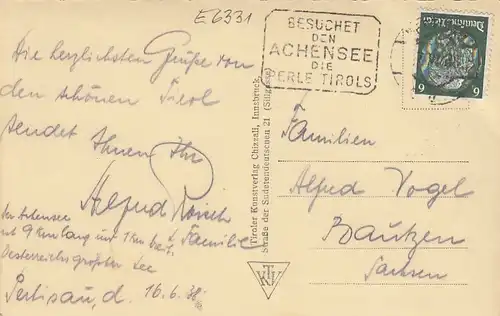 E6331
BESUCHET
DEN
ACHENSEE
DIE
PERLE TIROLS
Deutsches Reich
6 6
Die herzlichsten Grüße von
den schönen Tirol
sendet Ihnen Ihr
Alfred
u. Familie
Der Achensee
ist 9 km lang und 1 km breit
Oesterreichs größter See
Pertisau, d. 16.6.38
Tiroler Kunstverlag Chizzali, Innsbruck,
Straße der Sudetendeutschen 21 (Stilgasse)
TKV
Familien
Alfred Vogel
Bautzen
Sachsen